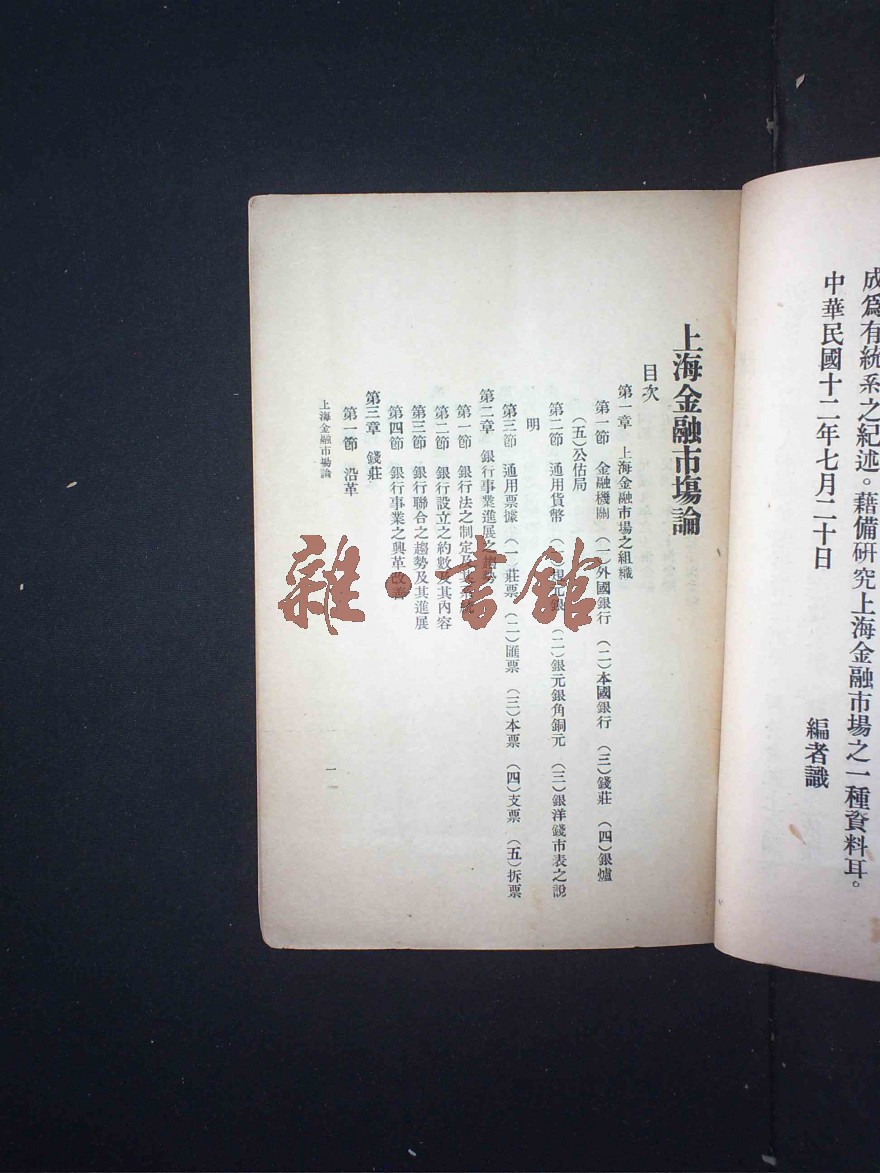 成爲有統系之紀述。藉備研究上海金融市場之一種資料耳。
中華民國十二年七月二十日
編者識
上海金融市場論
目次
第一章　上海金融市場之組織
第一節　金融機關　(一)外國銀行　(二)本國銀行　(三)錢莊　(四)銀爐
(五)公估局
第二節　通用貨幣　(一)規元銀　(二)銀元銀角銅元　(三)銀洋錢市表之說
明
第三節　通用票據　(一)莊票　(二)匯票　(三)本票　(四)支票　(五)拆票
第二章　銀行事業進展之趨勢
第一節　銀行法之制定及其
第二節　銀行設立之約數及其內容
第三節　銀行聯合之趨勢及其進展
第四節　銀行事業之興革改善
第三章　錢莊
第一節　沿革
上海金融市場論
一
雜·書館